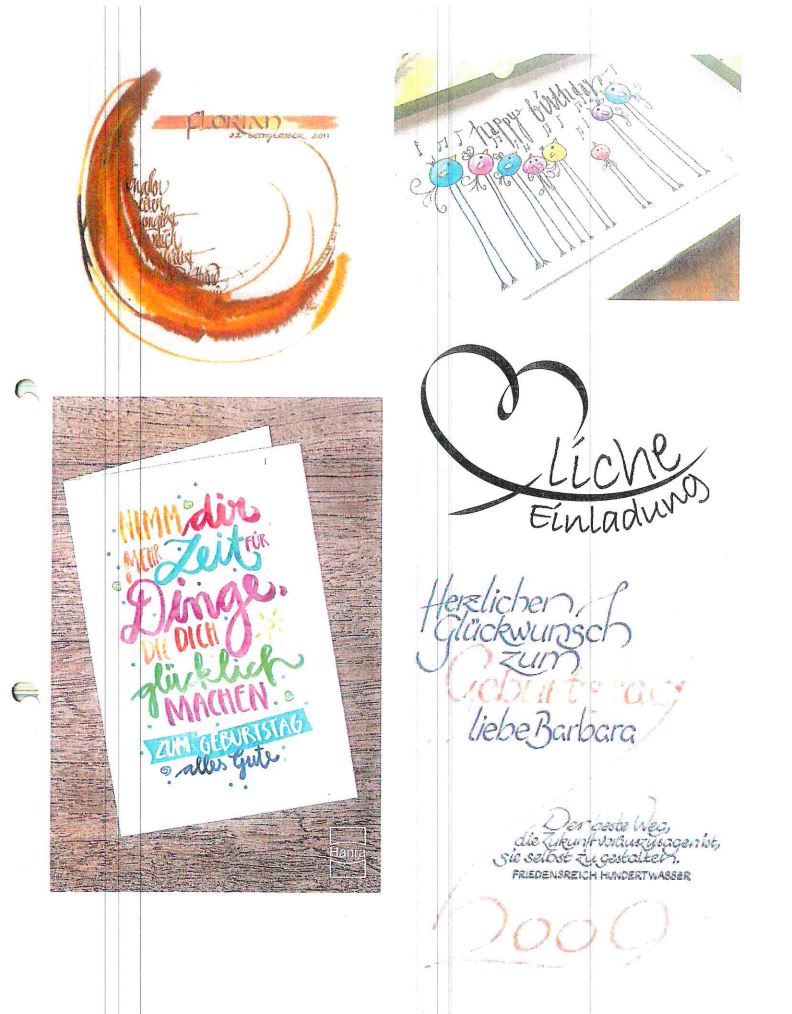 FLORIAN
22. SEPTEMBER 2011
happy birthday
liche
Einladung
NIMM dir
MEHR Zeit FÜR
Dinge,
DIE DICH
glücklich
MACHEN
ZUM GEBURTSTAG
alles Gute
Hanra
Herzlichen
Glückwunsch
zum
Geburtstag
liebe Barbara
Der beste Weg,
die Zukunft vorauszusagen ist,
sie selbst zu gestalten.
FRIEDENSREICH HUNDERTWASSER
2009